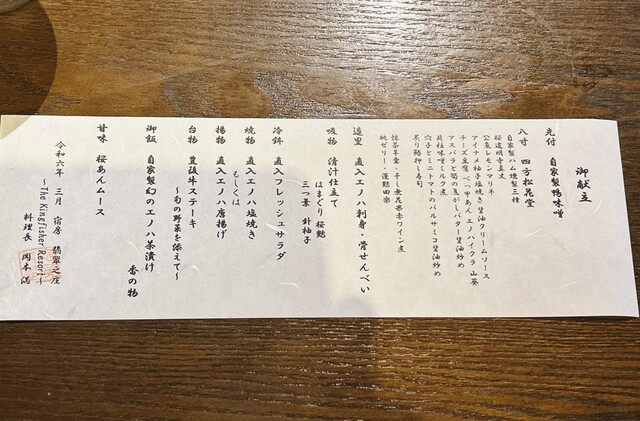 御献立
先付　自家製鴨味噌
八寸　四方松花堂
自家製ハム燻製三種
桜道明寺真丈
公魚レモンマリネ
アイナメ柚子塩焼き 醤油クリームソース
チーズ豆腐 べっ甲あん エノハイクラ 山葵
アスパラと筍の焦がしバター醤油炒め
貝柱味噌ミルク煮
穴子とミニトマトのバルサミコ醤油炒め
炙り鯖押し寿司
抹茶羊羹・干し無花果赤ワイン煮
桃ゼリー・蓬麩田楽
造里　直入エノハ刺身・骨せんべい
吸物　清汁仕立て
はまぐり 桜麩
三つ葉　針柚子
冷鉢　直入フレッシュサラダ
焼物　直入エノハ塩焼き
もしくは
揚物　直入エノハ唐揚げ
台物　豊後牛ステーキ
～旬の野菜を添えて～
御飯　自家製幻のエノハ茶漬け
香の物
甘味　桜あんムース
令和六年　三月　宿房　翡翠之庄
～The Kingfisher Resort～
料理長　岡本 満